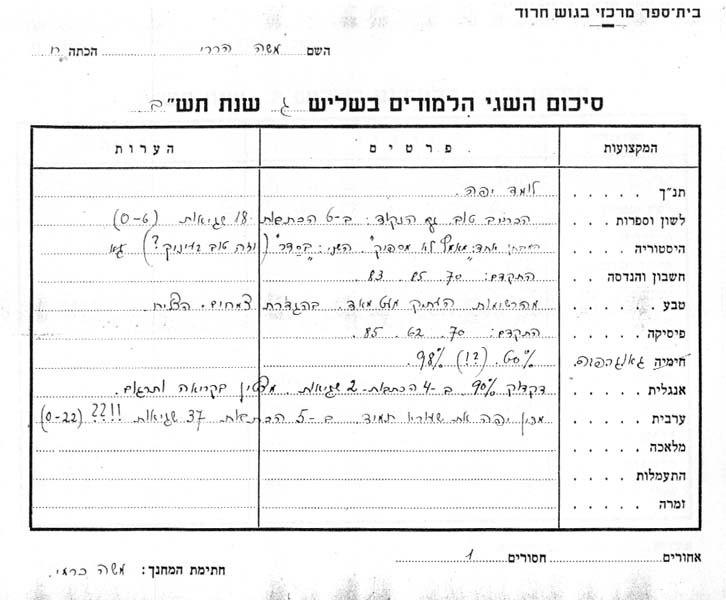 בית-ספר מרכזי בגוש חרוד
השם משה הררי הכתה ח
סיכום השגי הלמודים בשליש ג שנת תש"ב
המקצועות פרטים הערות
תנ"ך לומד יפה.
לשון וספרות הכתיב טוב עם הנקוד: ב-6 הכתבות 18 שגיאות (0-6)
היסטוריה אחד: "מאמץ לא מספיק". השני: "בסדר" (וזה טוב בעיניך?)
חשבון והנדסה התקדם: 70 85 83.
טבע מהרשימות העתיק מעט מאד. בהגדרת צמחים. הצליח.
פיסיקה התקדם: 70. 62. 85.
חימיה גאוגרפיה. 60% (!?) 98%.
אנגלית דקדוק 90%. ב-4 הכתבות-2 שגיאות. מצטין בקריאה ותרגום.
ערבית מכין יפה את שעוריו תמיד. ב-5 הכתבות 37 שגיאות !!?? (0-22)
מלאכה
התעמלות
זמרה
אחורים חסורים 1
חתימת המחנך: משה כרמי.